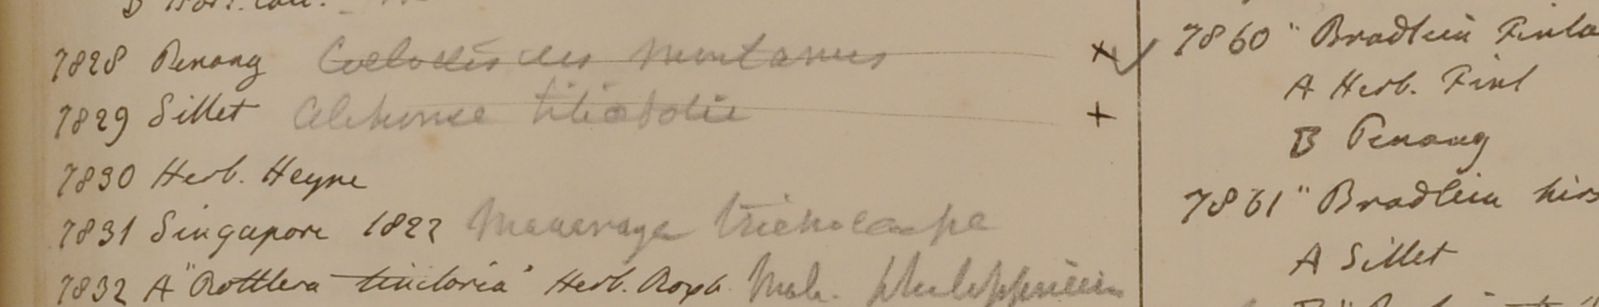 B Hort. Calc.
7828 Penang Coelodiscus montanus × ✓
7829 Sillet Alchornea tiliaefolia +
7830 Herb. Heyne
7831 Singapore 1822 Macaranga trichocarpa
7832 A "Rottlera tinctoria" Herb. Roxb. Mal. philippinensis
7860 " Bradleia Finla
A Herb. Finl
B Penang
7861 " Bradleia hirs
A Sillet